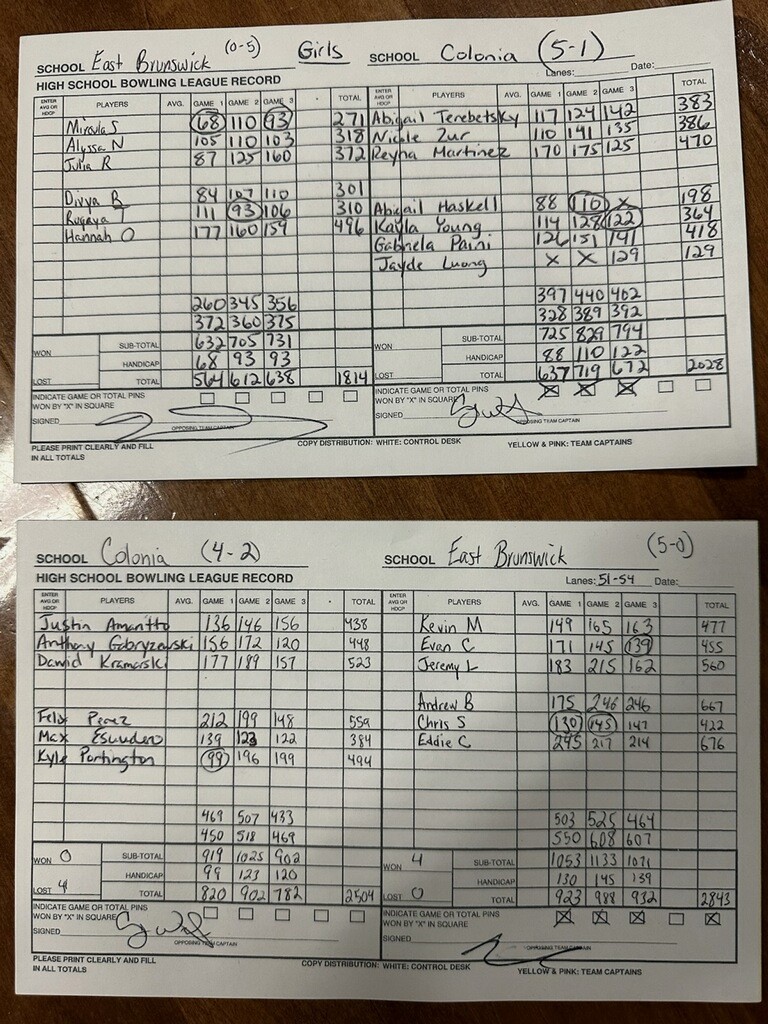 SCHOOL East Brunswick (0-5) Girls SCHOOL Colonia (5-1)
HIGH SCHOOL BOWLING LEAGUE RECORD Lanes: Date:
ENTER AVG OR HDCP PLAYERS AVG. GAME 1 GAME 2 GAME 3 TOTAL ENTER AVG OR HDCP PLAYERS AVG. GAME 1 GAME 2 GAME 3 TOTAL
S 68 110 93 271 Abigail Terebetsky 117 124 142 383
Alyssa N 105 110 103 318 Nicole Zur 110 141 135 386
Julia R 87 125 160 372 Reyna Martinez 170 175 125 470
Divya B 84 107 110 301
Ruqaya T 111 93 106 310 Abigail Haskell 88 110 X 198
Hannah O 177 160 159 496 Kayla Young 114 128 122 364
Gabriela Paini 126 151 141 418
Jayde Luong X X 129 129
260 345 356 397 440 402
372 360 375 328 389 392
WON SUB-TOTAL 632 705 731 WON SUB-TOTAL 725 829 794
HANDICAP 68 93 93 HANDICAP 88 110 122
LOST TOTAL 564 612 638 1814 LOST TOTAL 637 719 672 2028
INDICATE GAME OR TOTAL PINS WON BY "X" IN SQUARE INDICATE GAME OR TOTAL PINS WON BY "X" IN SQUARE X X X
SIGNED SIGNED
OPPOSING TEAM CAPTAIN OPPOSING TEAM CAPTAIN
PLEASE PRINT CLEARLY AND FILL IN ALL TOTALS COPY DISTRIBUTION: WHITE: CONTROL DESK YELLOW & PINK: TEAM CAPTAINS
SCHOOL Colonia (4-2) SCHOOL East Brunswick (5-0)
HIGH SCHOOL BOWLING LEAGUE RECORD Lanes: 51-54 Date:
ENTER AVG OR HDCP PLAYERS AVG. GAME 1 GAME 2 GAME 3 TOTAL ENTER AVG OR HDCP PLAYERS AVG. GAME 1 GAME 2 GAME 3 TOTAL
Justin Amaritto 136 146 156 438 Kevin M 149 165 163 477
Anthony Gabryzewski 156 172 120 448 Evan C 171 145 139 455
Dawid Kramarski 177 189 157 523 Jeremy L 183 215 162 560
Andrew B 175 246 246 667
Felix Perez 212 199 148 559 Chris S 130 145 147 422
Max Escudero 139 123 122 384 Eddie C 245 217 214 676
Kyle Partington 99 196 199 494
469 507 433 503 525 464
450 518 469 550 608 607
WON 0 SUB-TOTAL 919 1025 902 WON 4 SUB-TOTAL 1053 1133 1071
HANDICAP 99 123 120 HANDICAP 130 145 139
LOST 4 TOTAL 820 902 782 2504 LOST 0 TOTAL 923 988 932 2843
INDICATE GAME OR TOTAL PINS WON BY "X" IN SQUARE INDICATE GAME OR TOTAL PINS WON BY "X" IN SQUARE X X X X
SIGNED SIGNED
OPPOSING TEAM CAPTAIN OPPOSING TEAM CAPTAIN
PLEASE PRINT CLEARLY AND FILL IN ALL TOTALS COPY DISTRIBUTION: WHITE: CONTROL DESK YELLOW & PINK: TEAM CAPTAINS